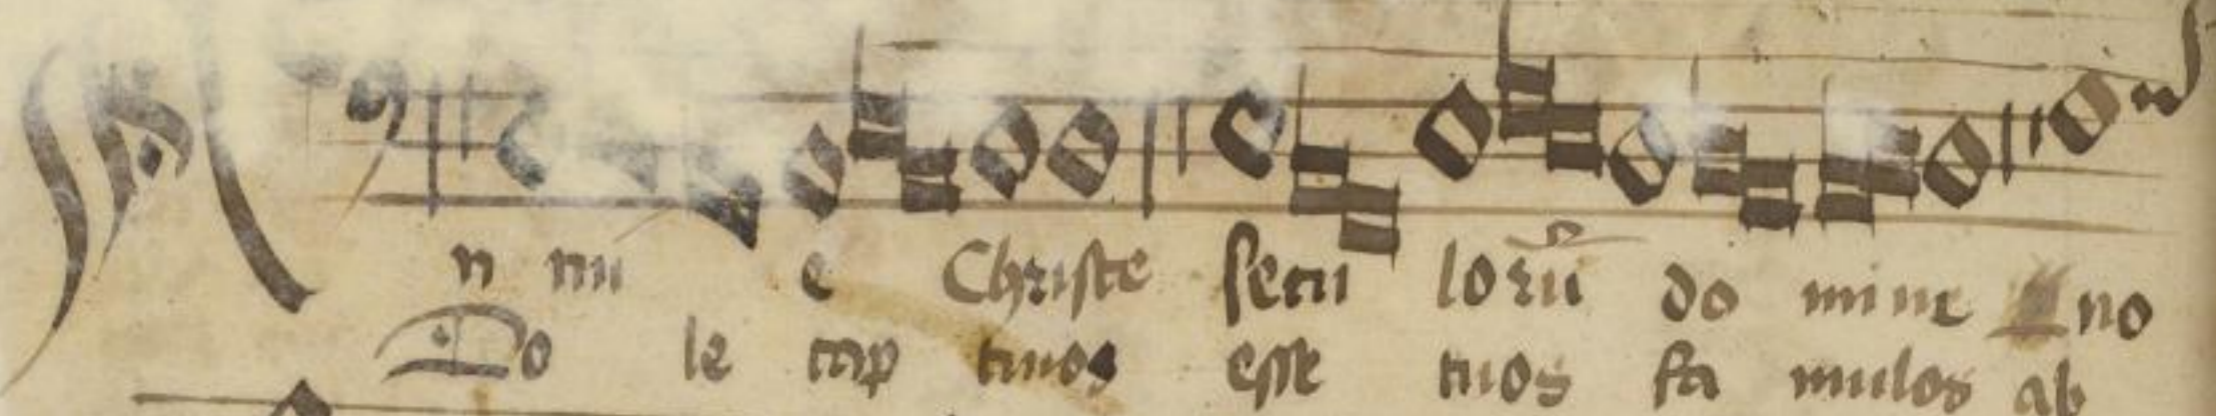 An nu e Christe secu loru do mine no
Do le cap tiuos esse tuos fa mulos ab